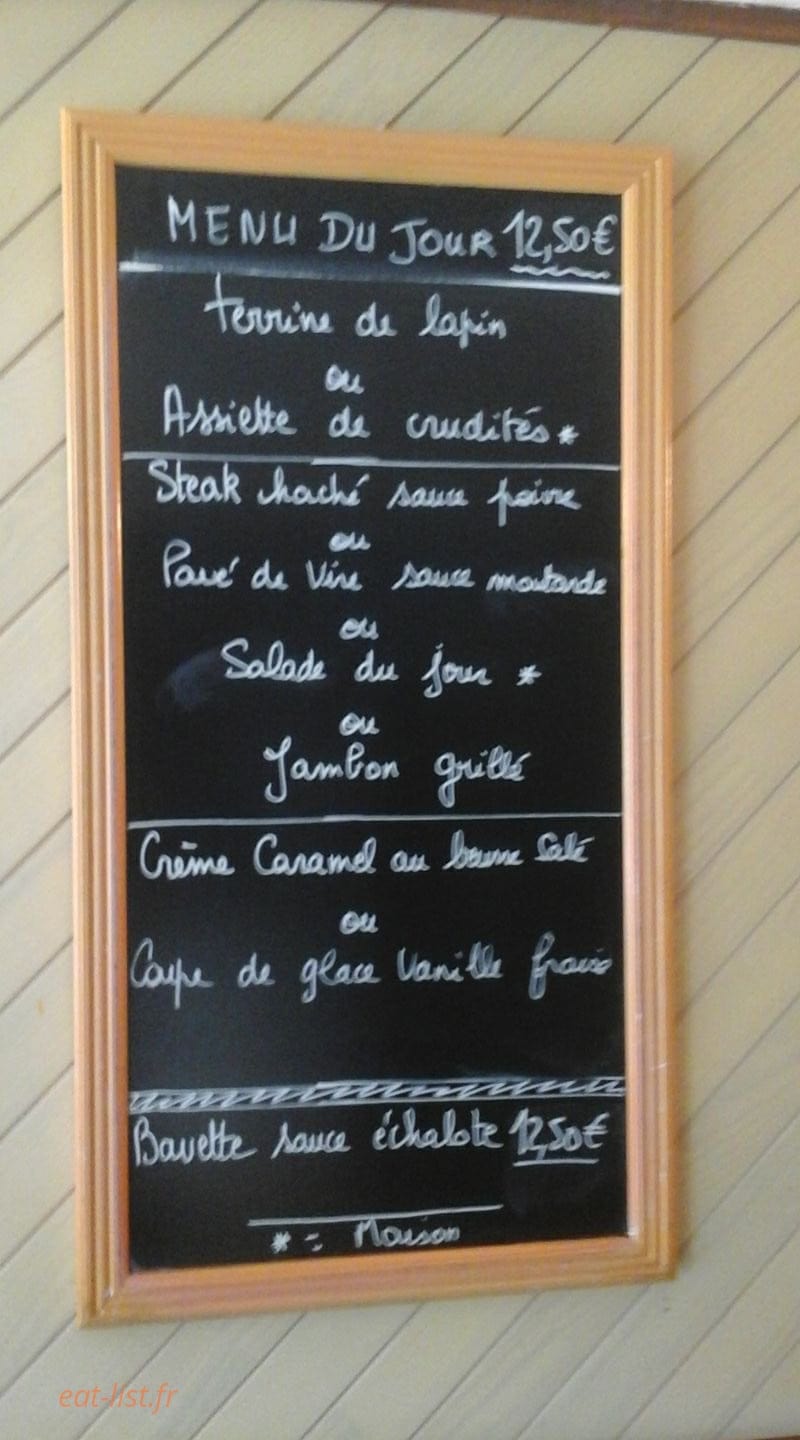 MENU DU JOUR 12,50€
terrine de lapin
ou
Assiette de crudités *
Steak haché sauce poivre
ou
Pavé de Vire sauce moutarde
ou
Salade du jour *
ou
Jambon grillé
Crème Caramel au beurre Salé
ou
Coupe de glace Vanille frais
Bavette sauce échalote 12,50€
* = Maison
eat-list.fr